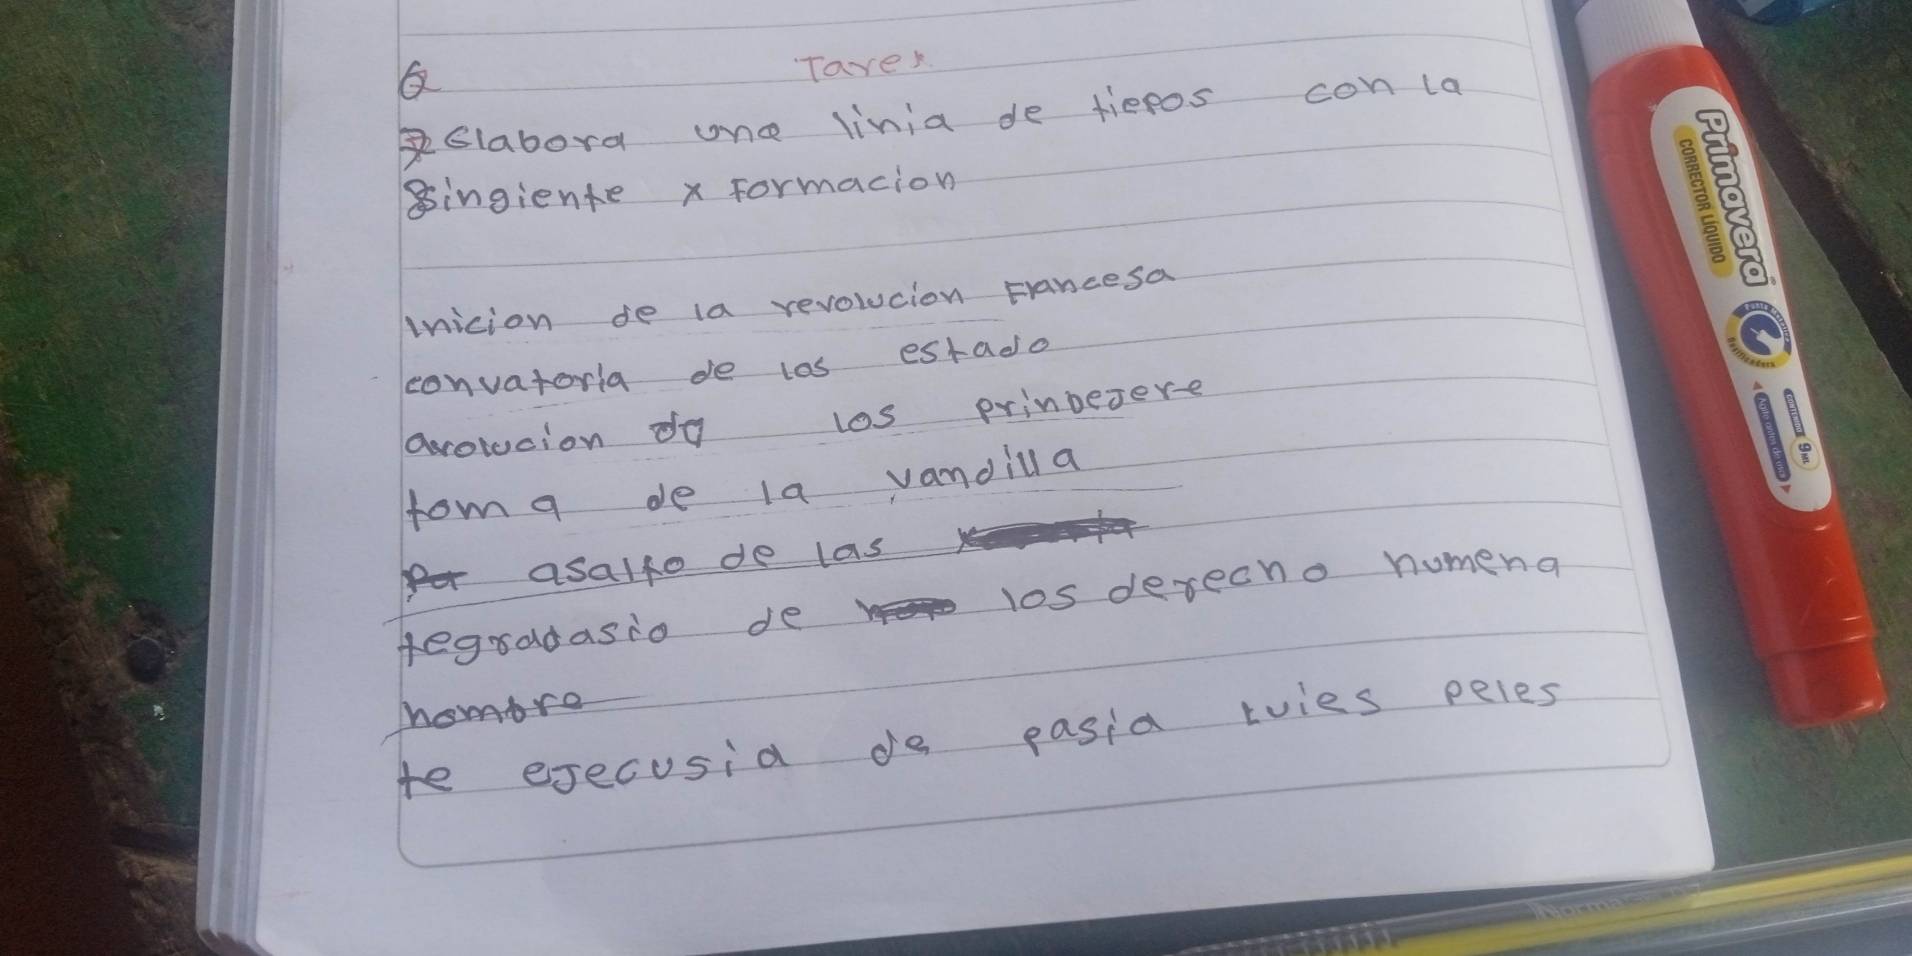 Tarea
Elabora una linia de tiepos con la
singiente x Formacion
inicion de la revolucion Francesa
convatoria de los estado
avolucion da los prinbejere
toma de la vandilla
asalto de las
tegradasio de los derecho humena
hombre
te ejecusia de pasia luies peles
Primavera
CORRECTOR LÍQUIDO
Punta Metálica
Dosificadora
Agite antes de usar
CONTENIDO
9 ML
Norma